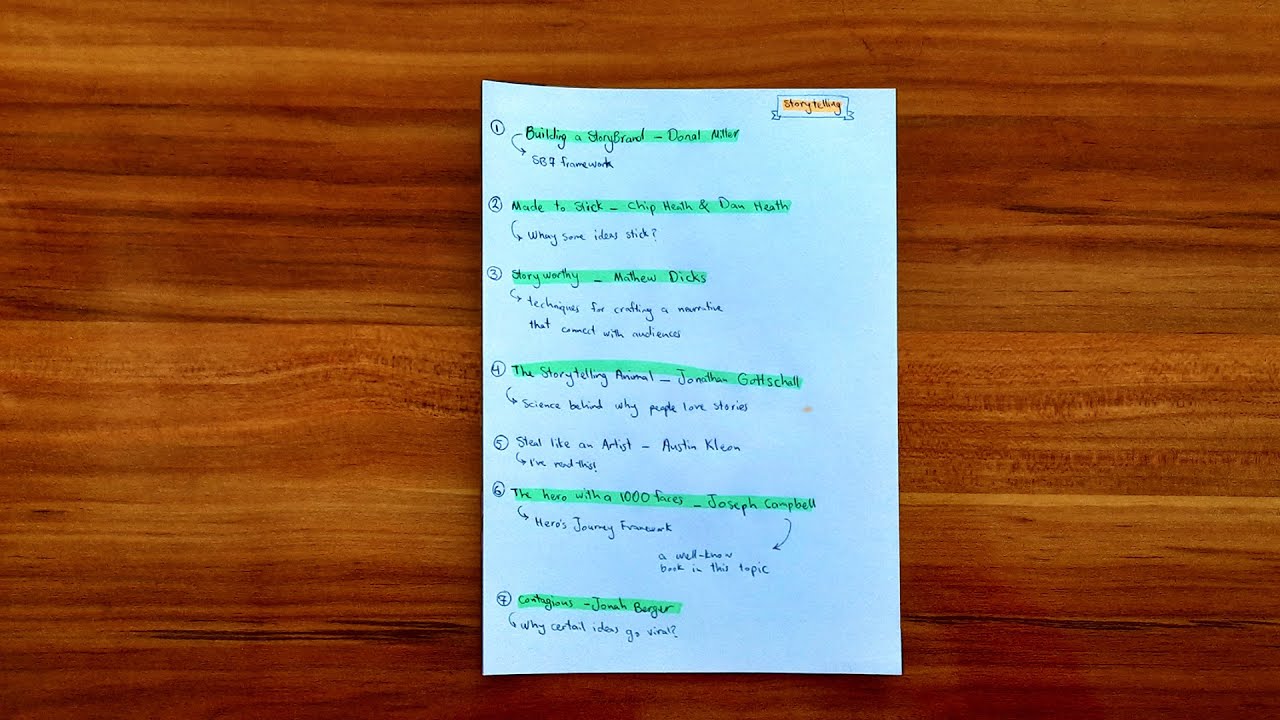 Storytelling
① Building a StoryBrand - Donal Miller
SB7 framework
② Made to Stick - Chip Heath & Dan Heath
Whay some ideas stick?
③ Storyworthy - Mathew Dicks
techniques for crafting a narrative
that connect with audiences
④ The Storytelling Animal - Jonathan Gottschall
Science behind why people love stories
⑤ Steal like an Artist - Austin Kleon
I've read this!
⑥ The hero with a 1000 faces - Joseph Campbell
Hero's Journey Framework
a well-know
book in this topic
⑦ Contagious - Jonah Berger
Why certail ideas go viral?